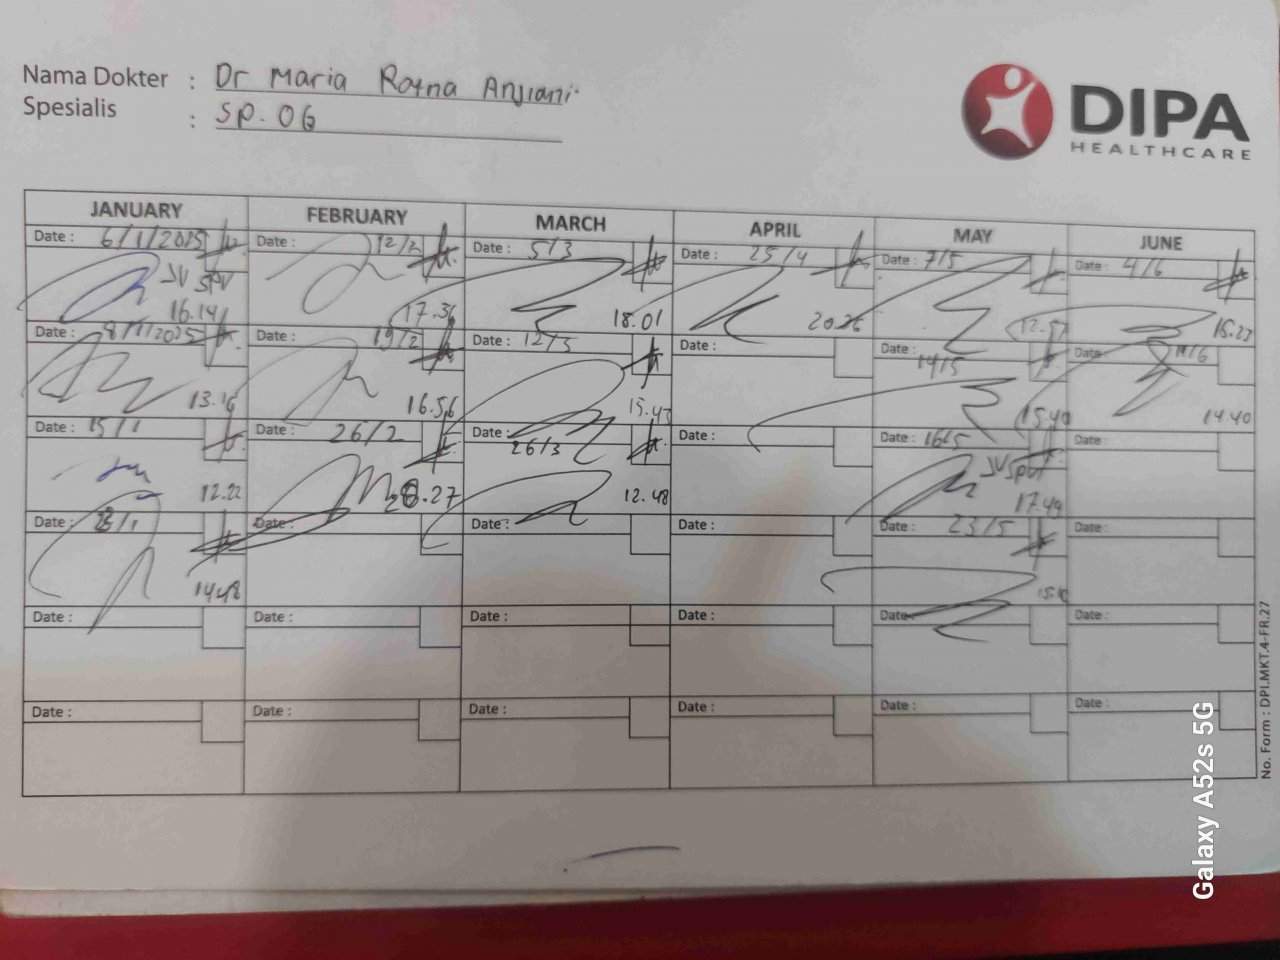 Nama Dokter : Dr Maria Ratna Anjiani
Spesialis : Sp. OG
DIPA
HEALTHCARE
JANUARY FEBRUARY MARCH APRIL MAY JUNE
Date : 6/1/2025 Date : 12/2 Date : 5/3 Date : 25/4 Date : 7/5 Date : 4/6
JV SPV
16.14 17.36 18.01 20.26 12.57 15.23
Date : 8/1/2025 Date : 19/2 Date : 12/3 Date : 14/5 Date : 11/6
13.16 16.56 15.43 15.40 14.40
Date : 15/1 Date : 26/2 Date : 26/3 Date : Date : 16/5 Date :
JV SPV
12.22 28.27 12.48 17.49
Date : /1 Date : Date : Date : Date : 23/5 Date :
14.48
Date : Date : Date : Date : Date : Date :
Date : Date : Date : Date : Date : Date :
No. Form : DPI.MKT.4-FR.27
Galaxy A52s 5G